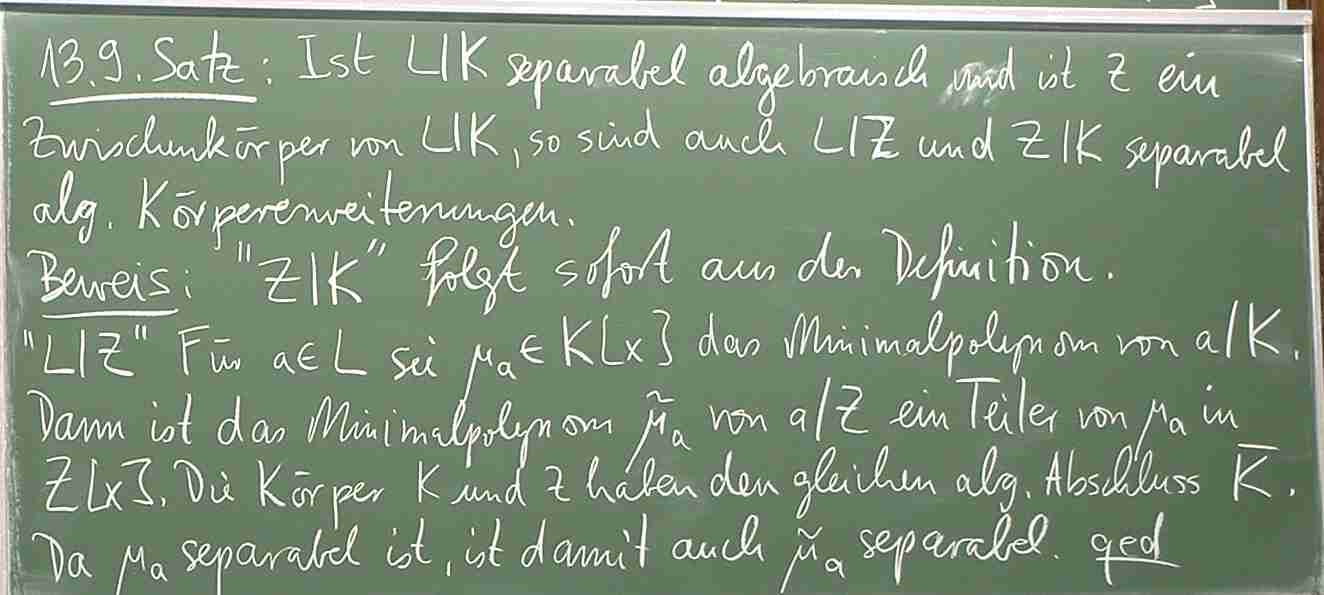 13.9. Satz: Ist L|K separabel algebraisch und ist Z ein
Zwischenkörper von L|K, so sind auch L|Z und Z|K separabel
alg. Körpererweiterungen.
Beweis: "Z|K" folgt sofort aus der Definition.
"L|Z" Für a∈L sei μₐ∈K[x] das Minimalpolynom von a/K.
Dann ist das Minimalpolynom μ̃ₐ von a/Z ein Teiler von μₐ in
Z[x]. Die Körper K und Z haben den gleichen alg. Abschluss K̅.
Da μₐ separabel ist, ist damit auch μ̃ₐ separabel. qed